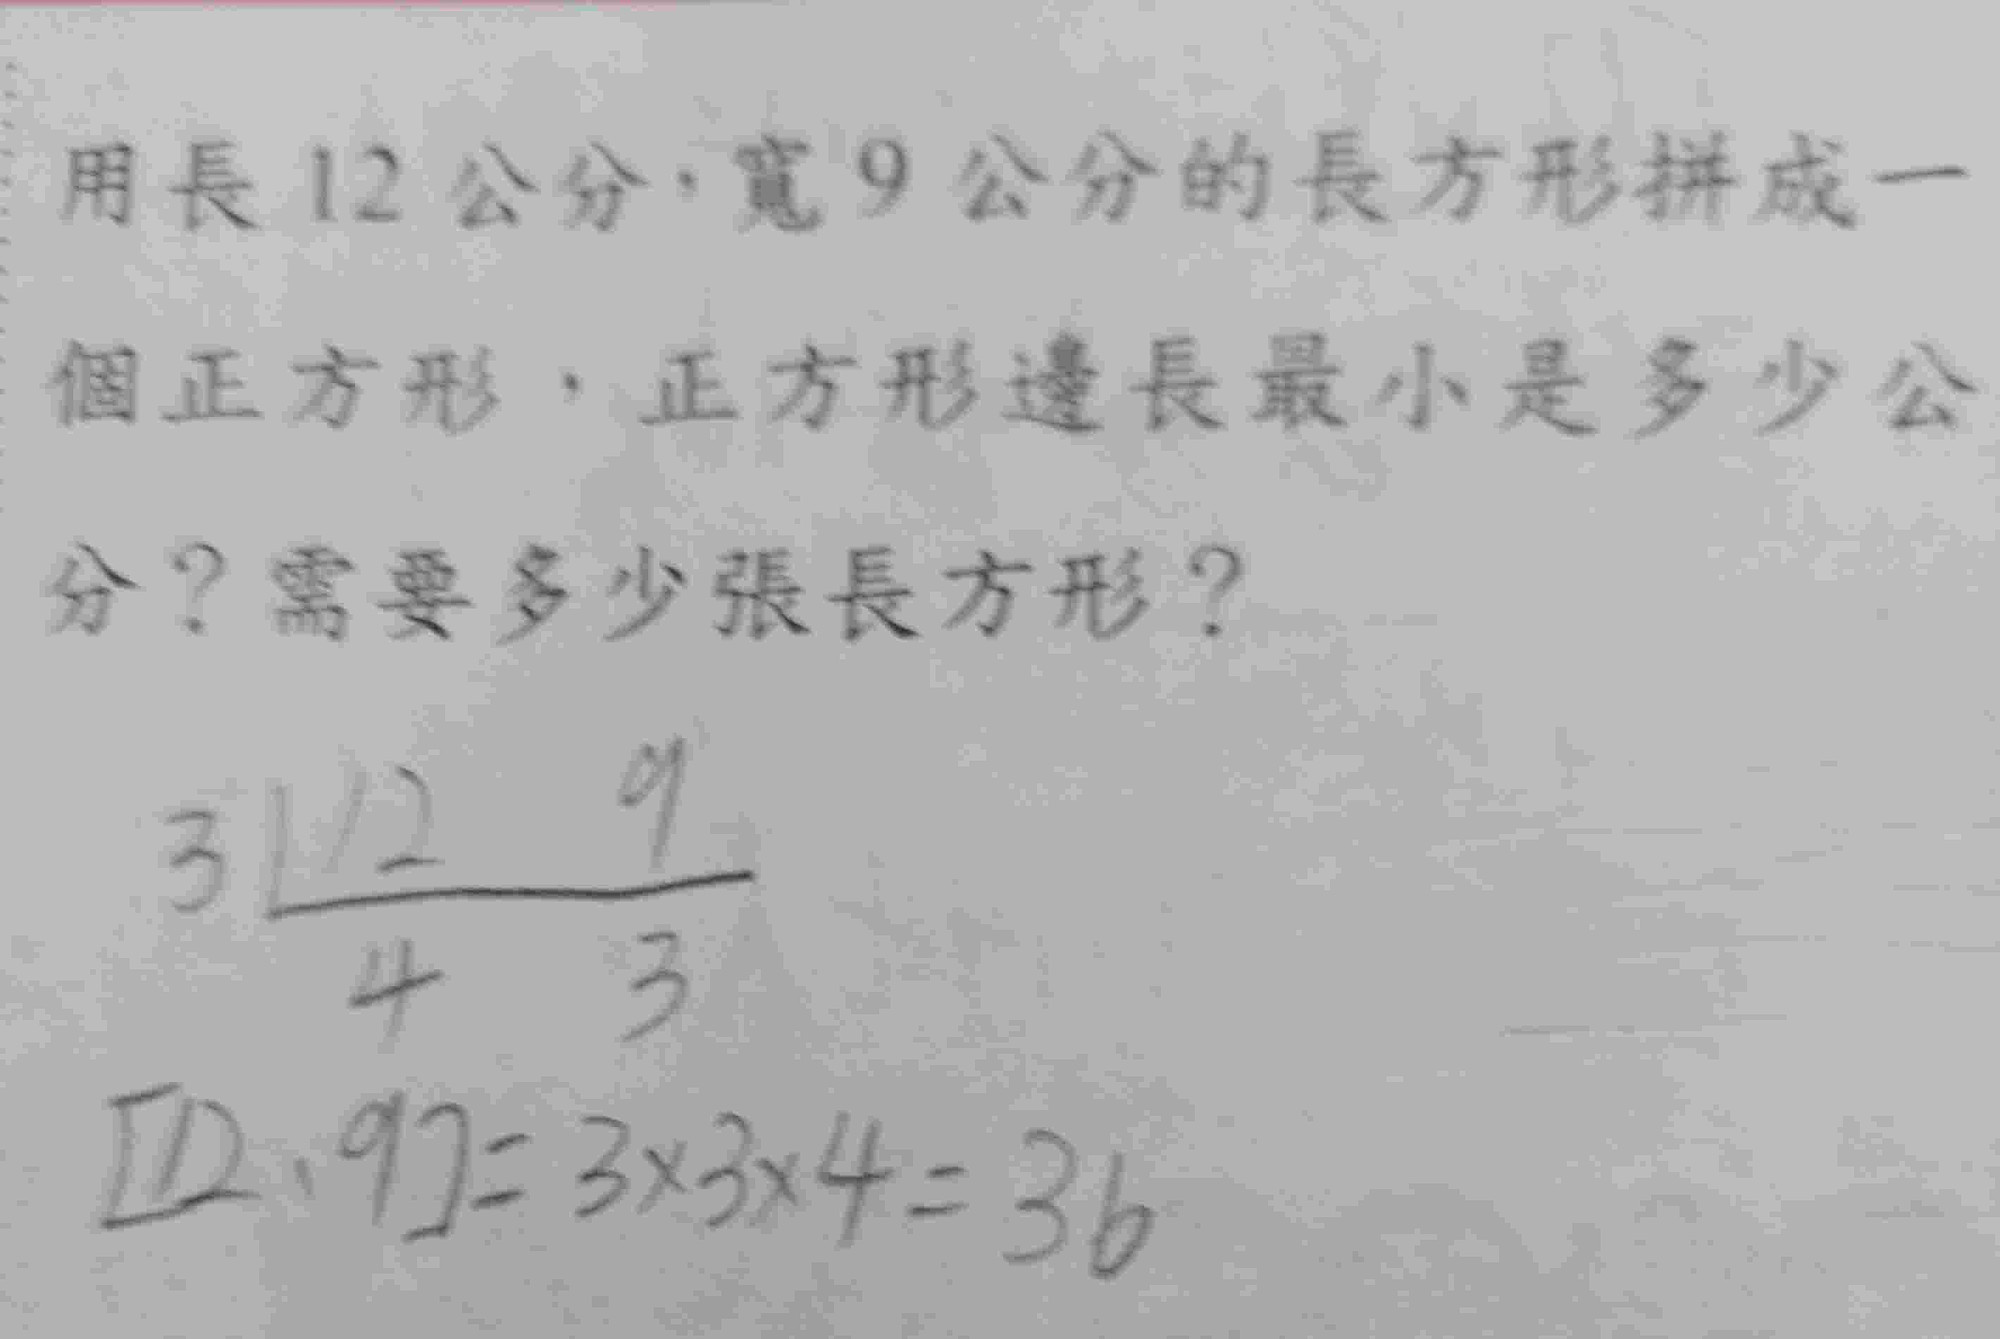 用長 12 公分,寬 9 公分的長方形拼成一
個正方形,正方形邊長最小是多少公
分?需要多少張長方形?
3 12 9
4 3
[12、9]=3×3×4=36